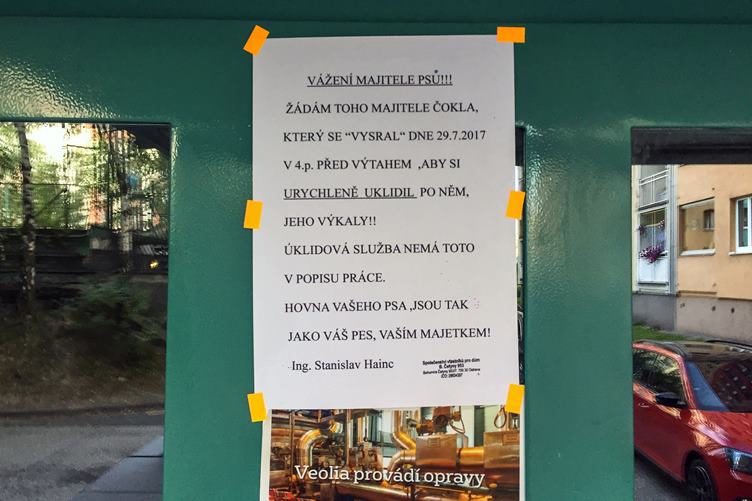 VÁŽENÍ MAJITELE PSŮ!!!
ŽÁDÁM TOHO MAJITELE ČOKLA,
KTERÝ SE “VYSRAL“ DNE 29.7.2017
V 4.p. PŘED VÝTAHEM ,ABY SI
URYCHLENĚ UKLIDIL PO NĚM,
JEHO VÝKALY!!
ÚKLIDOVÁ SLUŽBA NEMÁ TOTO
V POPISU PRÁCE.
HOVNA VAŠEHO PSA ,JSOU TAK
JAKO VÁŠ PES, VAŠÍM MAJETKEM!
Ing. Stanislav Hainc
Společenství vlastníků pro dům
B. Četyny 953
Veolia provádí opravy